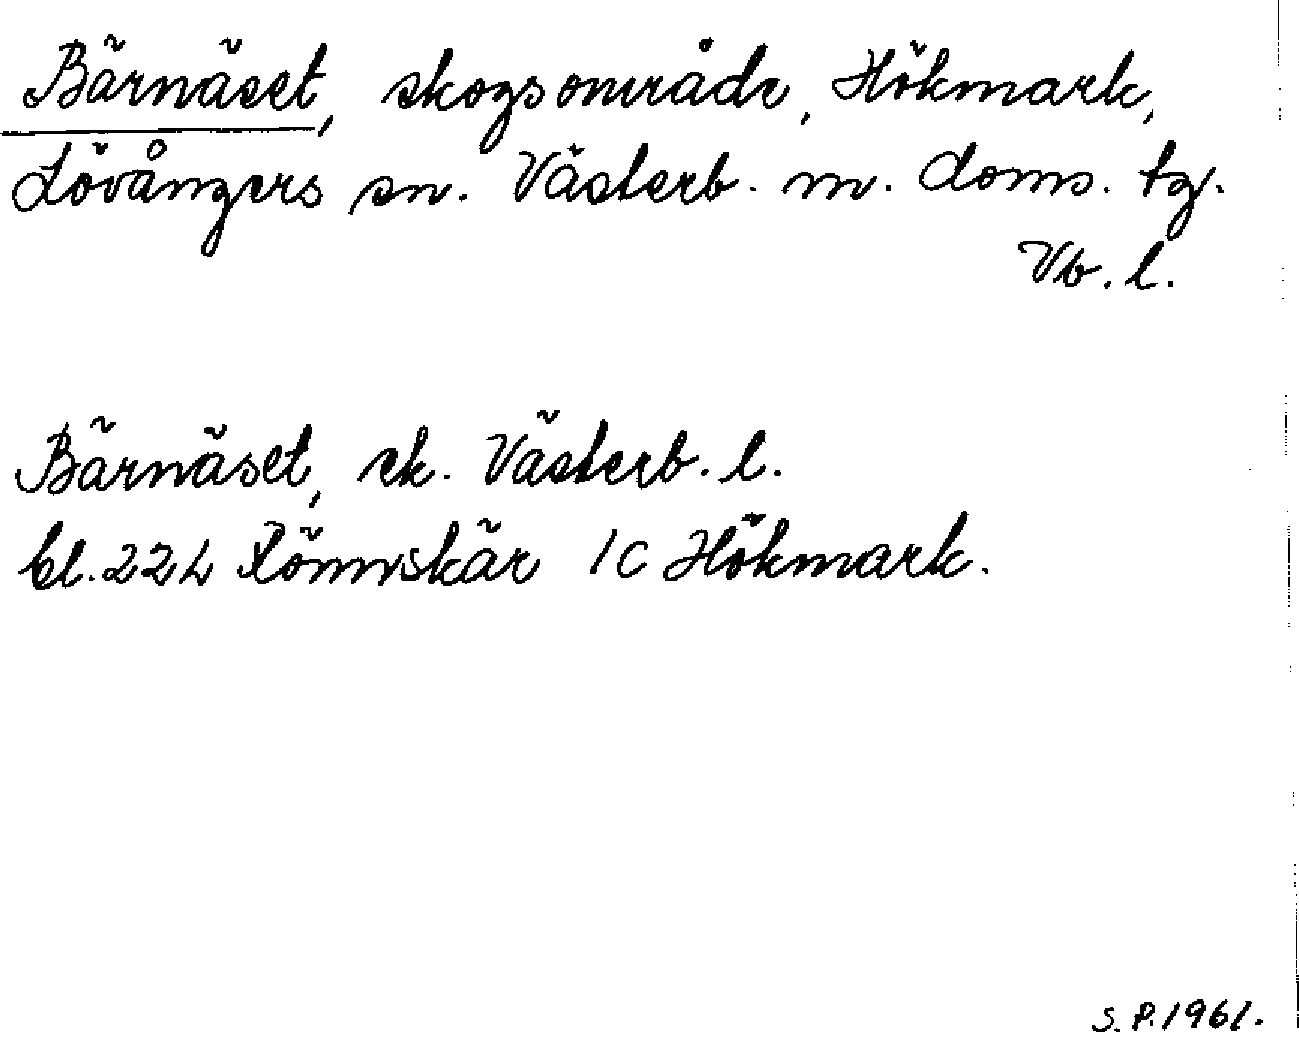 Bärnäset, skogsområde, Hökmark,
Lövångers sn. Västerb. m. doms. tg.
Vb. l.
Bärnäset, ek. Västerb. l.
bl. 22L Rönnskär 1c Hökmark.
S.P. 1961.